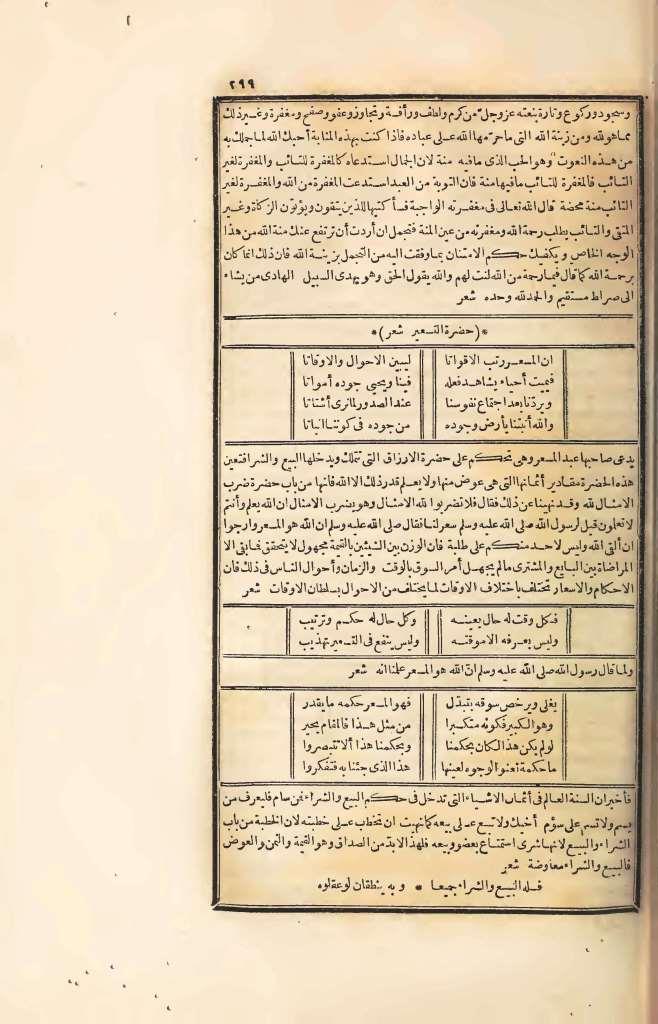 ٢٩٩
وسجود وركوع وتارة بنعته عز وجل من كرم ولطف ورأفة وتجاوز وعفو وصفح ومغفرة وغير ذلك
مما هو لله ومن زينة الله التي ماحرمها الله على عباده فاذا كنت بهذه المثابة أحبك الله لما جملك به
من هذه النعوت وهو الحب الذي مافيه منة لان الجمال استدعاه كالمغفرة للتائب والمغفرة لغير
التائب فالمغفرة للتائب مافيها منة فان التوبة من العبد استدعت المغفرة من الله والمغفرة لغير
التائب منة محضة قال الله تعالى في مغفرته الواجبة فسأ كتبها للذين يتقون ويؤتون الزكاة وغير
المتقي والتائب يطلب رحمة الله ومغفرته من عين المنة فتجمل ان أردت أن ترتفع عنك منة الله من هذا
الوجه الخاص ويكفيك حكم الامتنان بما وفقت اليه من التجمل بزينة الله فان ذلك انما كان
برحمة الله كما قال فبما رحمة من الله لنت لهم والله يقول الحق وهو يهدي السبيل الهادي من يشاء
الى صراط مستقيم والحمد لله وحده شعر
*(حضرة التسعير شعر)*
ان المسعر رتب الاقواتا ليبين الاحوال والاوقاتا
فيميت أحياء يشاهد فعله فينا ويحيي جوده أمواتا
ويردنا بعد اجتماع نفوسنا عند الصدور لما نرى أشتاتا
والله أنبتنا بأرض وجوده من جوده في كوننا انباتا
يدعى صاحبها عبد المسعر وهي تحكم على حضرة الارزاق التي تتملك ويدخلها البيع والشراء فتعين
هذه الحضرة مقادير أثمانها التي هي عوض منها ولا يعلم قدر ذلك الا الله فانها من باب حضرة ضرب
الامثال لله وقد نهينا عن ذلك فقال فلا تضربوا لله الامثال وهو يضرب الامثال ان الله يعلم وأنتم
لا تعلمون قيل لرسول الله صلى الله عليه وسلم سعر لنا فقال صلى الله عليه وسلم ان الله هو المسعر وارجوا
ان ألقى الله وليس لاحد منكم على طلبة فان الوزن بين الشيئين بالقيمة مجهول لا يتحقق فما بقي الا
المراضاة بين البايع والمشترى مالم يجهل أمر السوق بالوقت والزمان وأحوال الناس في ذلك فان
الاحكام والاسعار تختلف باختلاف الاوقات لما يختلف من الاحوال بسلطان الاوقات شعر
فكل وقت له حال يعينه وكل حال له حكم وترتيب
وليس يعرفه الا موقته وليس ينفع في التسعير تهذيب
ولما قال رسول الله صلى الله عليه وسلم ان الله هو المسعر علمنا انه شعر
يغلي ويرخص سوقه يتبدل فهو المسعر حكمه ما يقدر
وهو الكبير فكونه متكبرا من مثل هذا فالمقام يحير
لو لم يكن هذا لكان بحكمنا وبحكمنا هذا ألا تتبصروا
ما حكمة تعنو الوجوه لعينها هذا الذي جئنا به فتفكروا
فأخبر ان السنة العالم في أثمان الاشياء التي تدخل في حكم البيع والشراء فمن سام فليعرف من
يسم ولا تسم على سؤم أخيك ولا تبع على بيعه كما نهيت ان تخطب على خطبته لان الخطبة من باب
الشراء والبيع لانها شرى استمتاع بعضو وبيعه فلهذا لابد من الصداق وهو القيمة والثمن والعوض
فالبيع والشراء معاوضة شعر
فله البيع والشراء جميعا * وبه ينطقان لو عقلوه